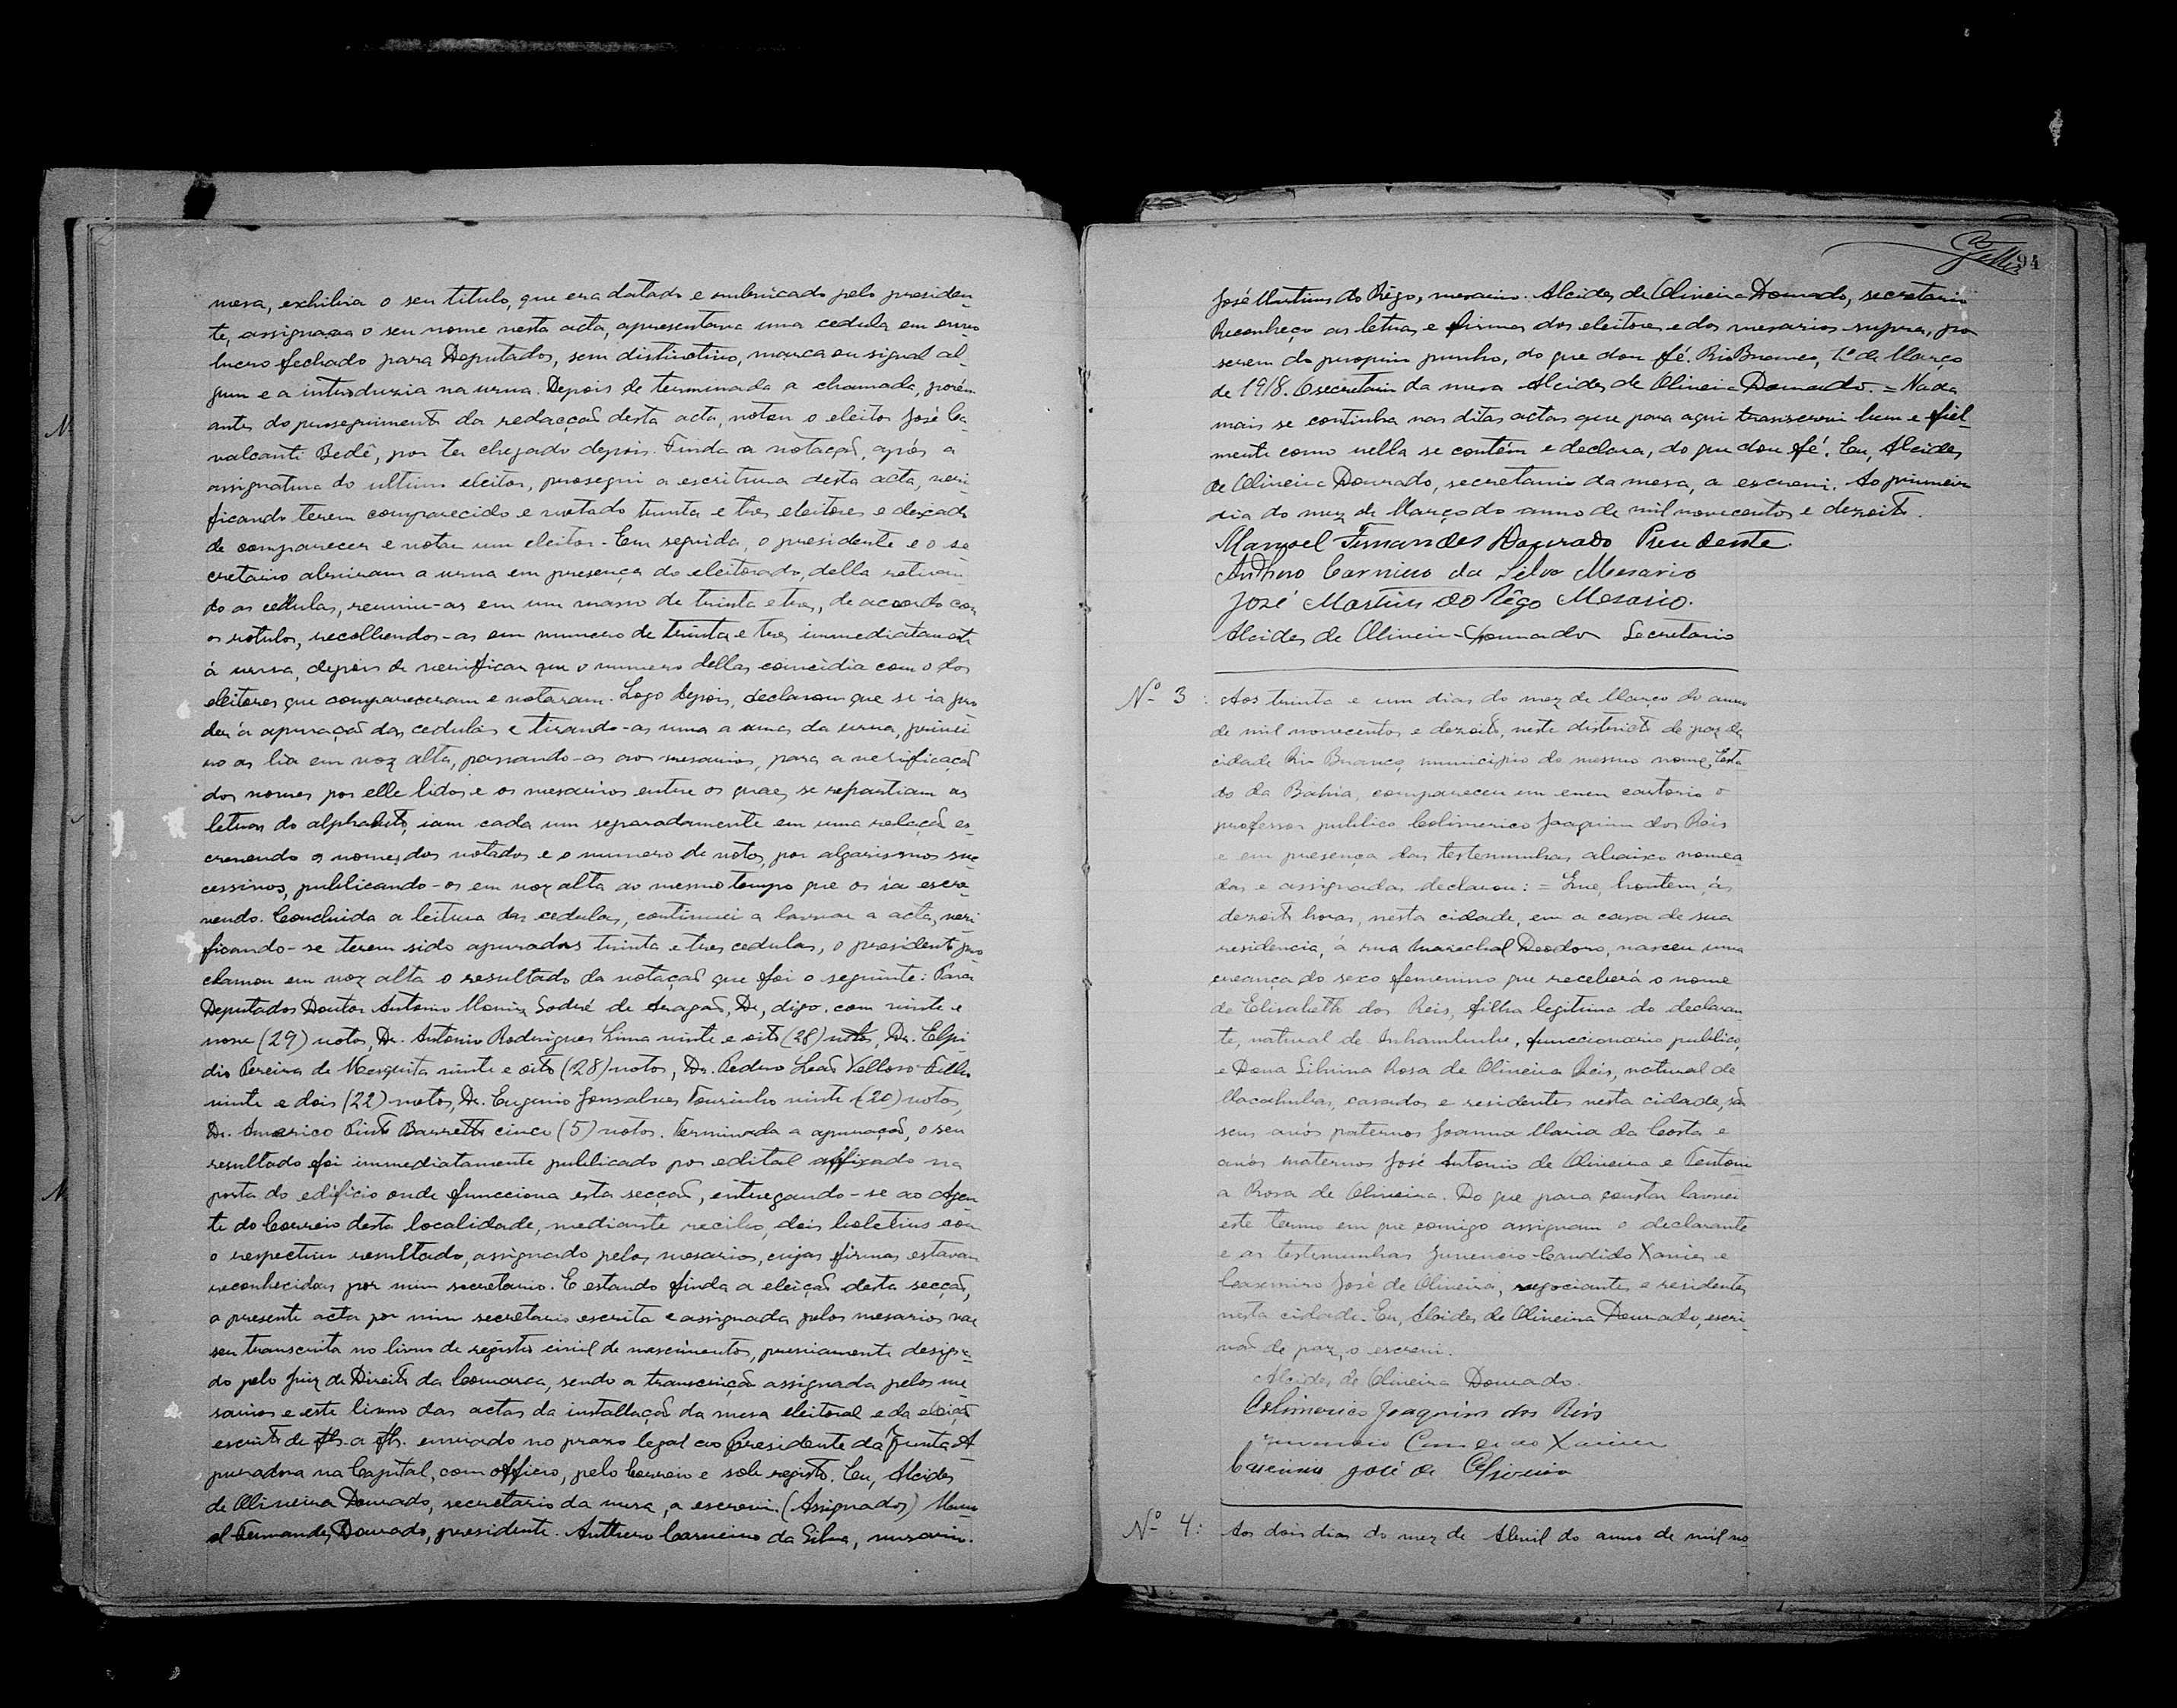 mesa, exhibia o seu titulo, que era datado e rubricado pelo presiden-
te, assignava o seu nome nesta acta, apresentava uma cedula em envo-
lucro fechado para Deputados, sem distinctivo, marca ou signal al-
gum e a introduzia na urna. Depois de terminada a chamada, porém
antes do proseguimento da redacção desta acta, votou o eleitor José Ca-
valcanti Bedê, por ter chegado depois. Finda a votação, após a
assignatura do ultimo eleitor, prosegui a escritura desta acta, veri-
ficando terem comparecido e votado trinta e tres eleitores e deixado
de comparecer e votar um eleitor. Em seguida, o presidente e o se-
cretario abriram a urna em presença do eleitorado, della retiran-
do as cedulas, reuniu-as em um masso de trinta e tres, de acordo com
os rotulos, recolhendo-as em numero de trinta e tres immediatamente
á urna, depois de verificar que o numero dellas coincidia com o dos
eleitores que compareceram e votaram. Logo depois, declararam que se ia pro-
der á apuração das cedulas e tirando-as uma a uma da urna, primei-
ro as lia em voz alta, passando-as aos mesarios, para a verificação
dos nomes por elle lidos e os mesarios entre os quaes se repartiam as
letras do alphabeto, iam cada um separadamente em uma relação es-
crevendo os nomes dos votados e o numero de votos, por algarismos suc-
cessivos, publicando-os em voz alta ao mesmo tempo que os ia escre-
vendo. Concluida a leitura das cedulas, continuei a lavrar a acta, veri-
ficando-se terem sido apuradas trinta e tres cedulas, o presidente pro-
clamou em voz alta o resultado da votação que foi o seguinte: Para
Deputados Doutor Antonio Moniz Sodré de Aragão, Dr, digo, com vinte e
nove (29) votos, Dr. Antonio Rodrigues Lima vinte e oito (28) votos, Dr. Elpi-
dio Pereira de Mesquita vinte e oito (28) votos, Dr. Pedro Leão Velloso Filho
vinte e dois (22) votos, Dr. Eugenio Gonsalves Tourinho vinte (20) votos,
Dr. Americo Pinto Barretto cinco (5) votos. Terminada a apuração, o seu
resultado foi immediatamente publicado por edital affixado na
porta do edificio onde funcciona esta secção, entregando-se ao Agen-
te do Correio desta localidade, mediante recibo, dois boletins com
o respectivo resultado, assignado pelos mesarios, cujas firmas estavam
reconhecidas por mim secretario. E estando finda a eleição desta secção,
a presente acta por mim secretario escrita e assignada pelos mesarios vae
ser transcrita no livro de registro civil de nascimentos, previamente designa-
do pelo Juiz de Direito da Comarca, sendo a transcrição assignada pelos me-
sarios e este livro das actas da installação da mesa eleitoral e da eleição
escrito de fls. a fls. enviado no prazo legal ao Presidente da Junta A-
puradora na Capital, com officio, pelo Correio e sob registo. Eu, Alcides
de Oliveira Dourado, secretario da mesa, a escrevi. (Assignados) Mano-
el Fernandes Dourado, presidente. Anthero Carneiro da Silva, mesario.
94
José Martins do Rêgo, mesario. Alcides de Oliveira Dourado, secretario
Reconheço as letras e firmas dos eleitores e dos mesarios supra, por
serem do proprio punho, do que dou fé. Rio Branco, 1º de Março
de 1918. O secretario da mesa Alcides de Oliveira Dourado. = Nada
mais se continha nas ditas actas que para aqui transcrevi bem e fiel-
mente como nella se contém e declara, do que dou fé. Eu, Alcides
de Oliveira Dourado, secretario da mesa, a escrevi. Ao primeiro
dia do mez de Março do anno de mil novecentos e dezoito.
Manoel Fernandes Dourado Presidente
Anthero Carneiro da Silva Mesario
José Martins do Rêgo Mesario.
Alcides de Oliveira Dourado Secretario
Nº 3: Aos trinta e um dias do mez de Março do anno
de mil novecentos e dezoito, neste districto de paz da
cidade Rio Branco, municipio do mesmo nome, Esta-
do da Bahia, compareceu em meu cartorio o
professor publico Colimerico Joaquim dos Reis
e em presença das testemunhas abaixo nomea-
das e assignadas declarou: = Que, hontem, ás
dezoito horas, nesta cidade, em a casa de sua
residencia, á rua Marechal Deodoro, nasceu uma
creança do sexo femenino que receberá o nome
de Elisabeth dos Reis, filha legitima do declaran-
te, natural de Inhambupe, funccionario publico,
e Dona Silvina Rosa de Oliveira Reis, natural de
Macahubas, casados e residentes nesta cidade, são
seus avós paternos Joanna Maria da Costa e
avós maternos José Antonio de Oliveira e
a Rosa de Oliveira. Do que para constar lavrei
este termo em que comigo assignam o declarante
e as testemunhas Juvencio Candido Xavier e
Casemiro José de Oliveira, negociante e residentes
nesta cidade. Eu, Alcides de Oliveira Dourado, escri-
vão de paz, o escrevi.
Alcides de Oliveira Dourado.
Colimerico Joaquim dos Reis
Juvencio Candido Xavier
Casemiro José de Oliveira
Nº 4: Aos dois dias do mez de Abril do anno de mil no-